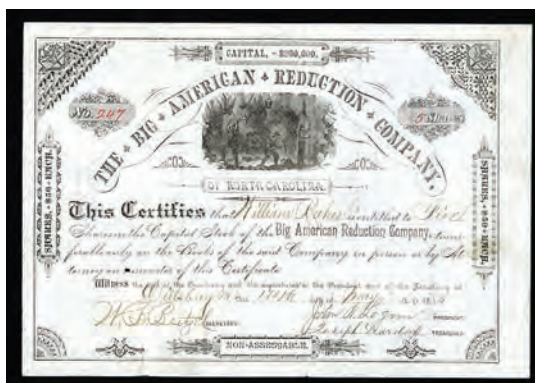 CAPITAL, - $200,000.
No. 247
5 Shares
THE BIG AMERICAN REDUCTION COMPANY.
OF NORTH CAROLINA.
SHARES, $50 EACH.
SHARES, $50 EACH.
This Certifies that William is entitled to Five
Shares in the Capital Stock of the Big American Reduction Company, trans
ferable only on the Books of the said Company in person or by At
torney on surrender of this Certificate
Witness the seal of the Company and the signatures of the President and of the Secretary at
this 17th day of May A.D. 188
SECRETARY.
John A. Logan PRESIDENT.
Joseph TREASURER.
NON-ASSESSABLE.